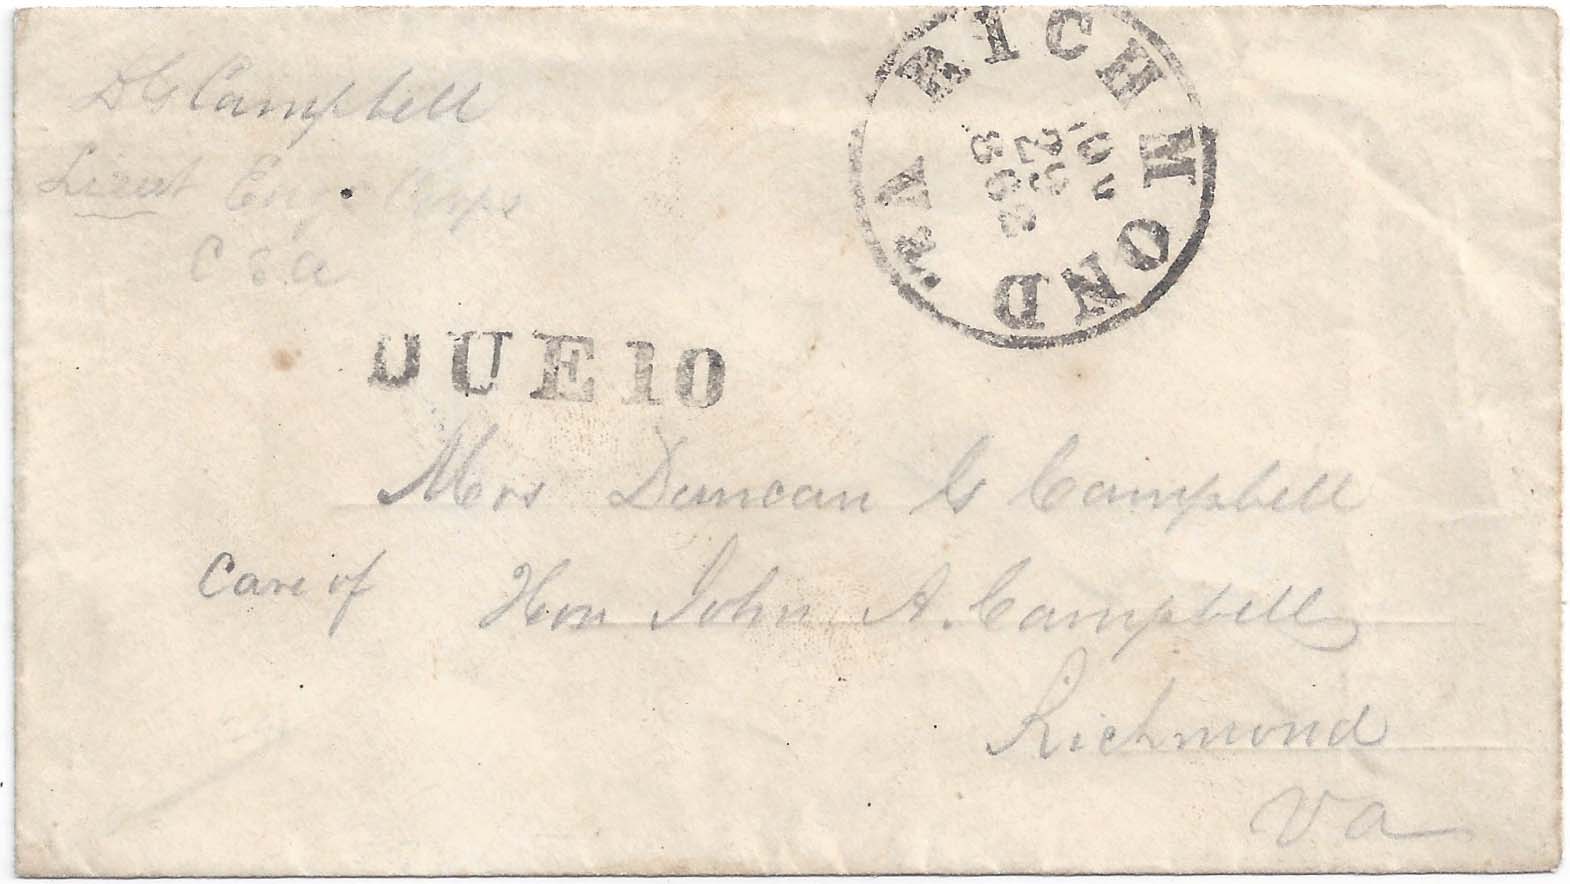 D G Campbell
Lieut Eng. Corps
C S A
RICHMOND VA.
NOV
29
862
DUE 10
Mrs Duncan G Campbell
Care of Hon John A. Campbell
Richmond
Va